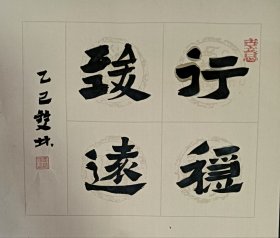 行穩
致遠
乙巳雙林